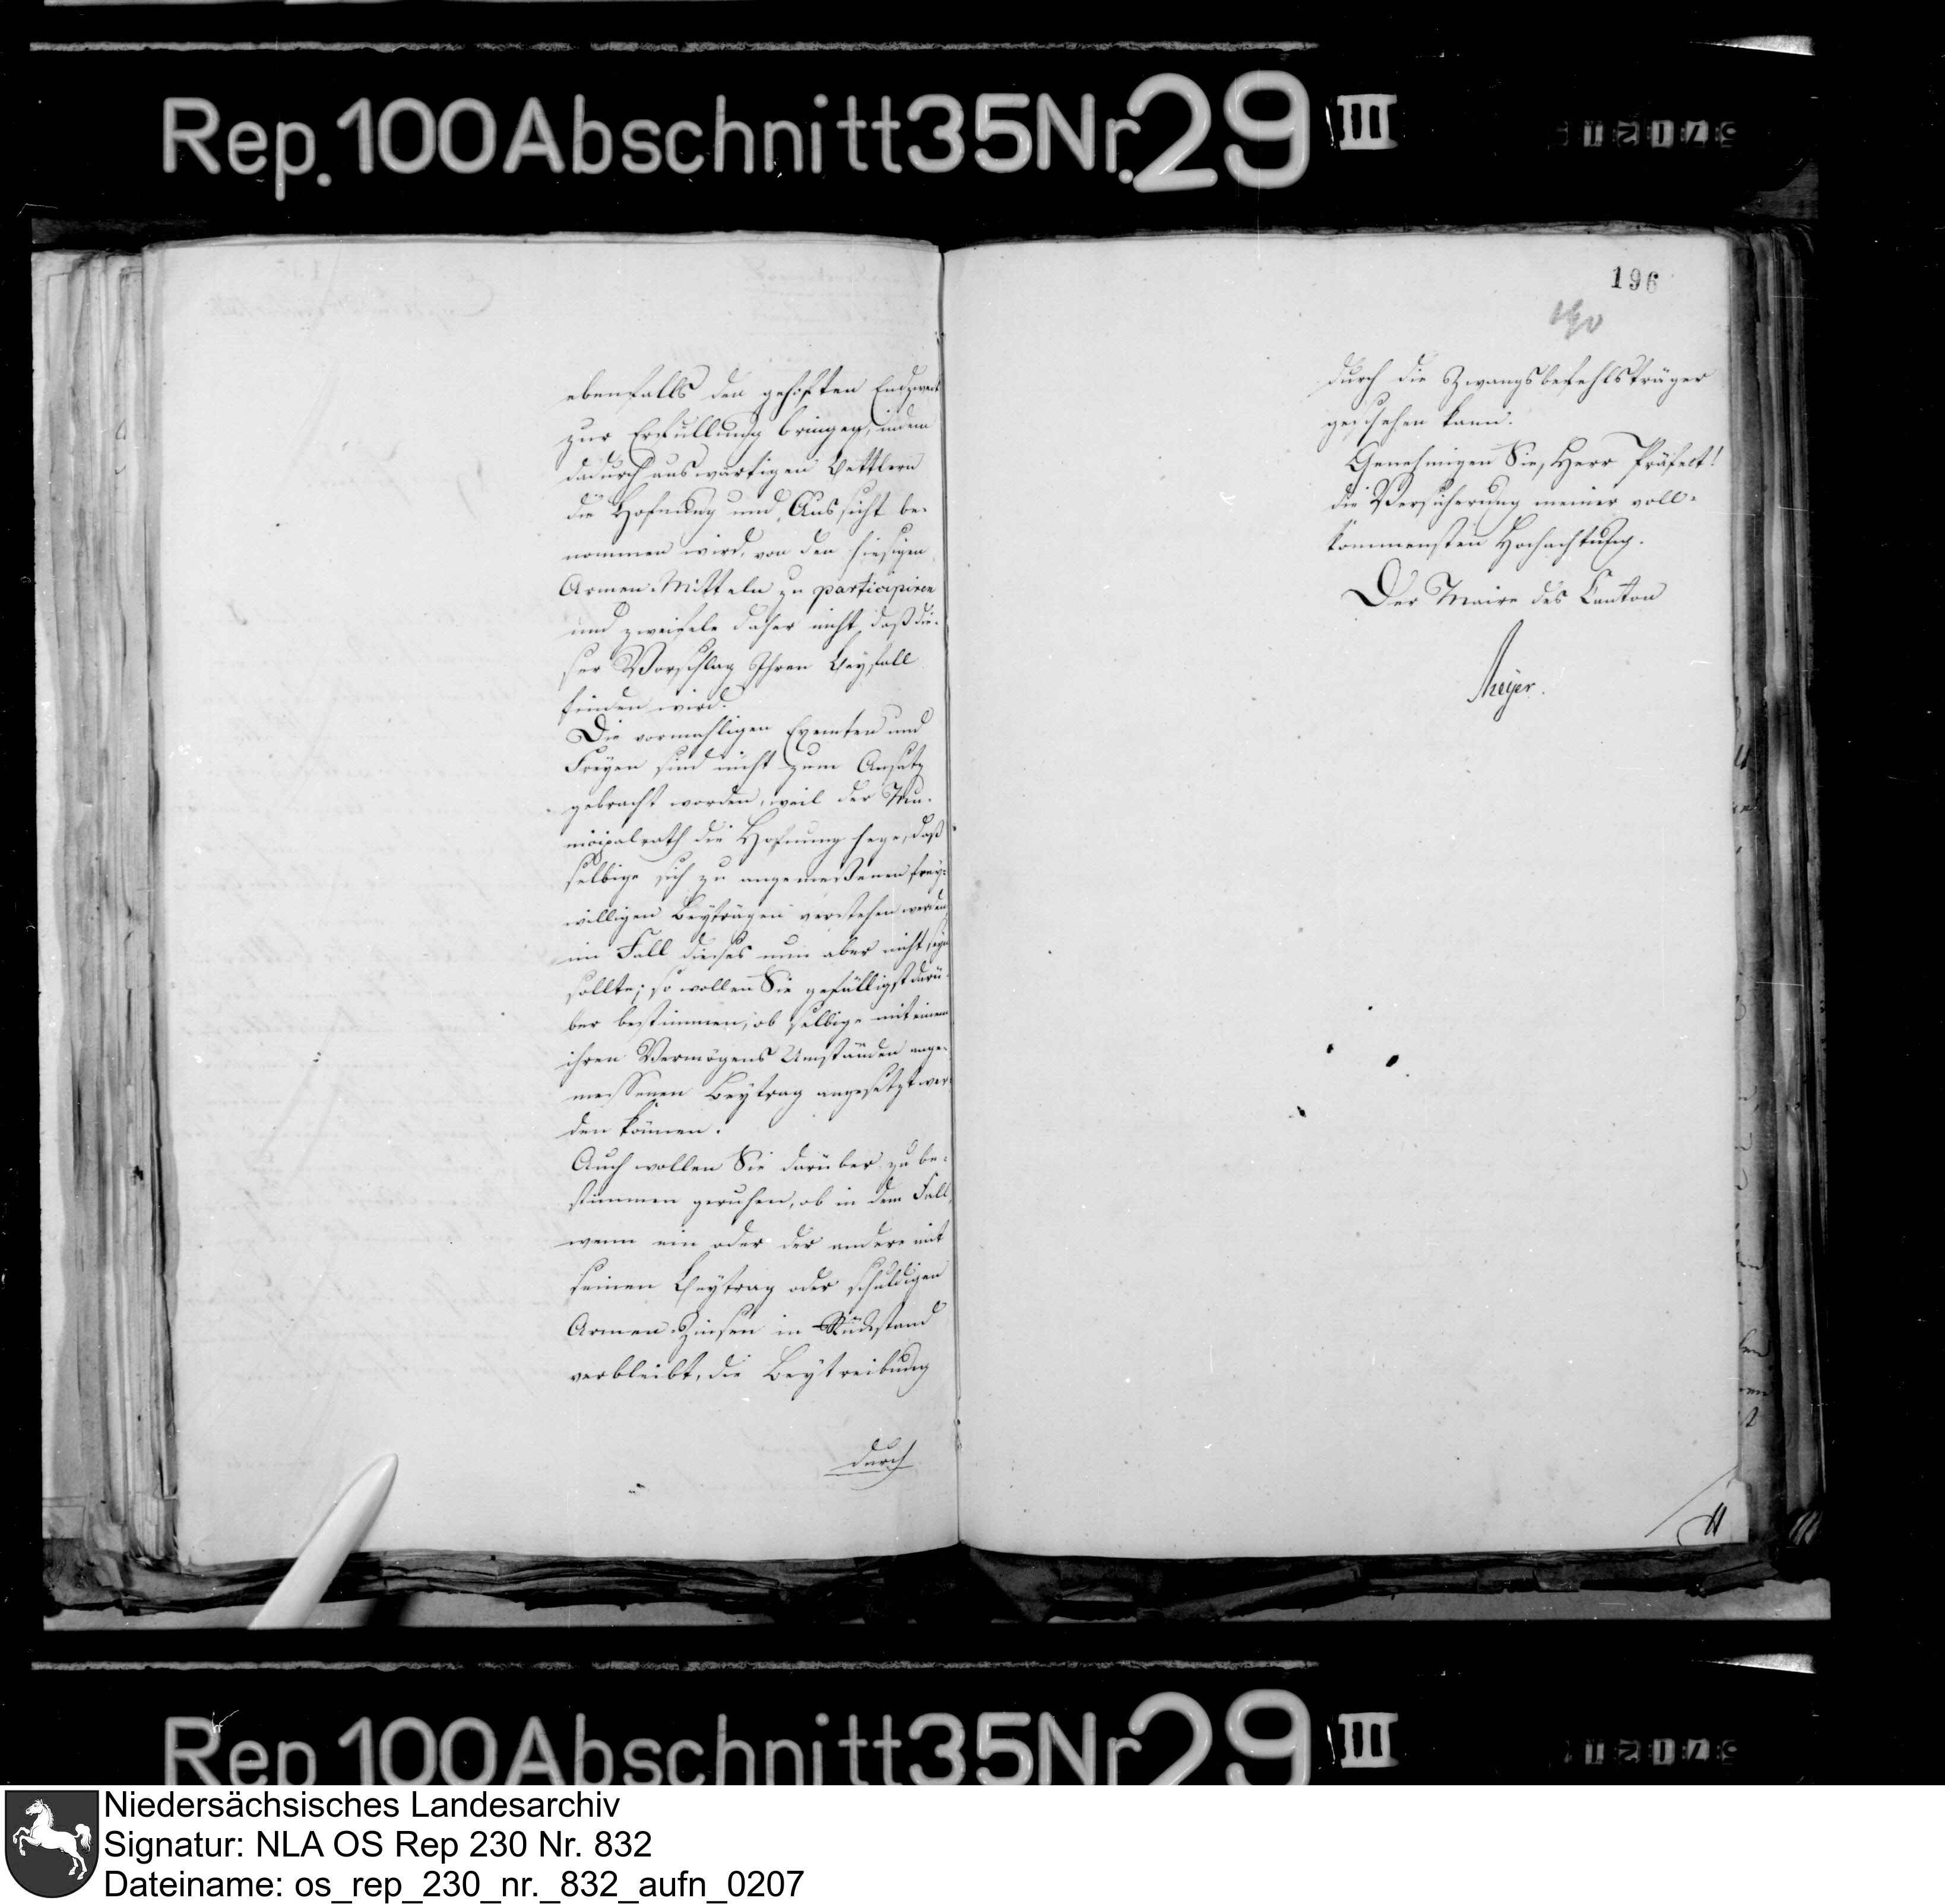 Rep. 100 Abschnitt 35 Nr. 29 III
ebenfalls den gehoften Endzweck
zur Erfüllung bringen, indem
dadurch auswärtigen Bettlern
die Hofnung und Aussicht be-
nommen wird, von den hiesigen
Armen-Mitteln zu participiren
und zweifele daher nicht, daß die-
ser Vorschlag Ihren Beyfall
finden wird.
Die vormahligen Exemten und
Freyen sind nicht zum Ansatz
gebracht worden, weil der Mu-
nicipalrath die Hofnung hege, daß
selbige sich zu angemeßenen frey-
willigen Beyträgen verstehen werden,
im Fall dieses nun aber nicht seyn
sollte; so wollen Sie gefälligst darü-
ber bestimmen, ob selbige mit einem
ihren Vermögens Umständen ange-
messenen Beytrag angesetzt wer-
den können.
Auch wollen Sie darüber zu be-
stimmen geruhen, ob in dem Fall,
wenn ein oder der andere mit
seinen Beytrag oder schuldigen
Armen-Zinsen in Rückstand
verbleibt, die Beytreibung
durch
196
durch die Zwangsbefehlsträger
geschehen kann.
Genehmigen Sie, Herr Präfect!
die Versicherung meiner voll-
kommensten Hochachtung.
Der Maire des Canton
Meyer.
Rep 100 Abschnitt 35 Nr 29 III
Niedersächsisches Landesarchiv
Signatur: NLA OS Rep 230 Nr. 832
Dateiname: os_rep_230_nr._832_aufn_0207